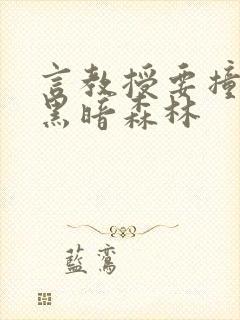 言教授要撞
黑暗森林
藍鸞